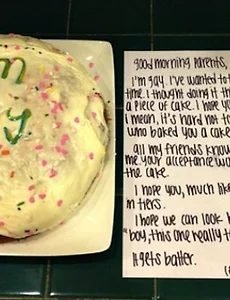 good morning Parents,
I'm gay. I've wanted to
time. I thought doing it
a piece of cake. I hope
I mean, it's hard not to
who baked you a cake
all my friends know
me your acceptance
the cake.
I hope you, much like
in tiers.
I hope we can look
"boy, this one really
It gets batter.